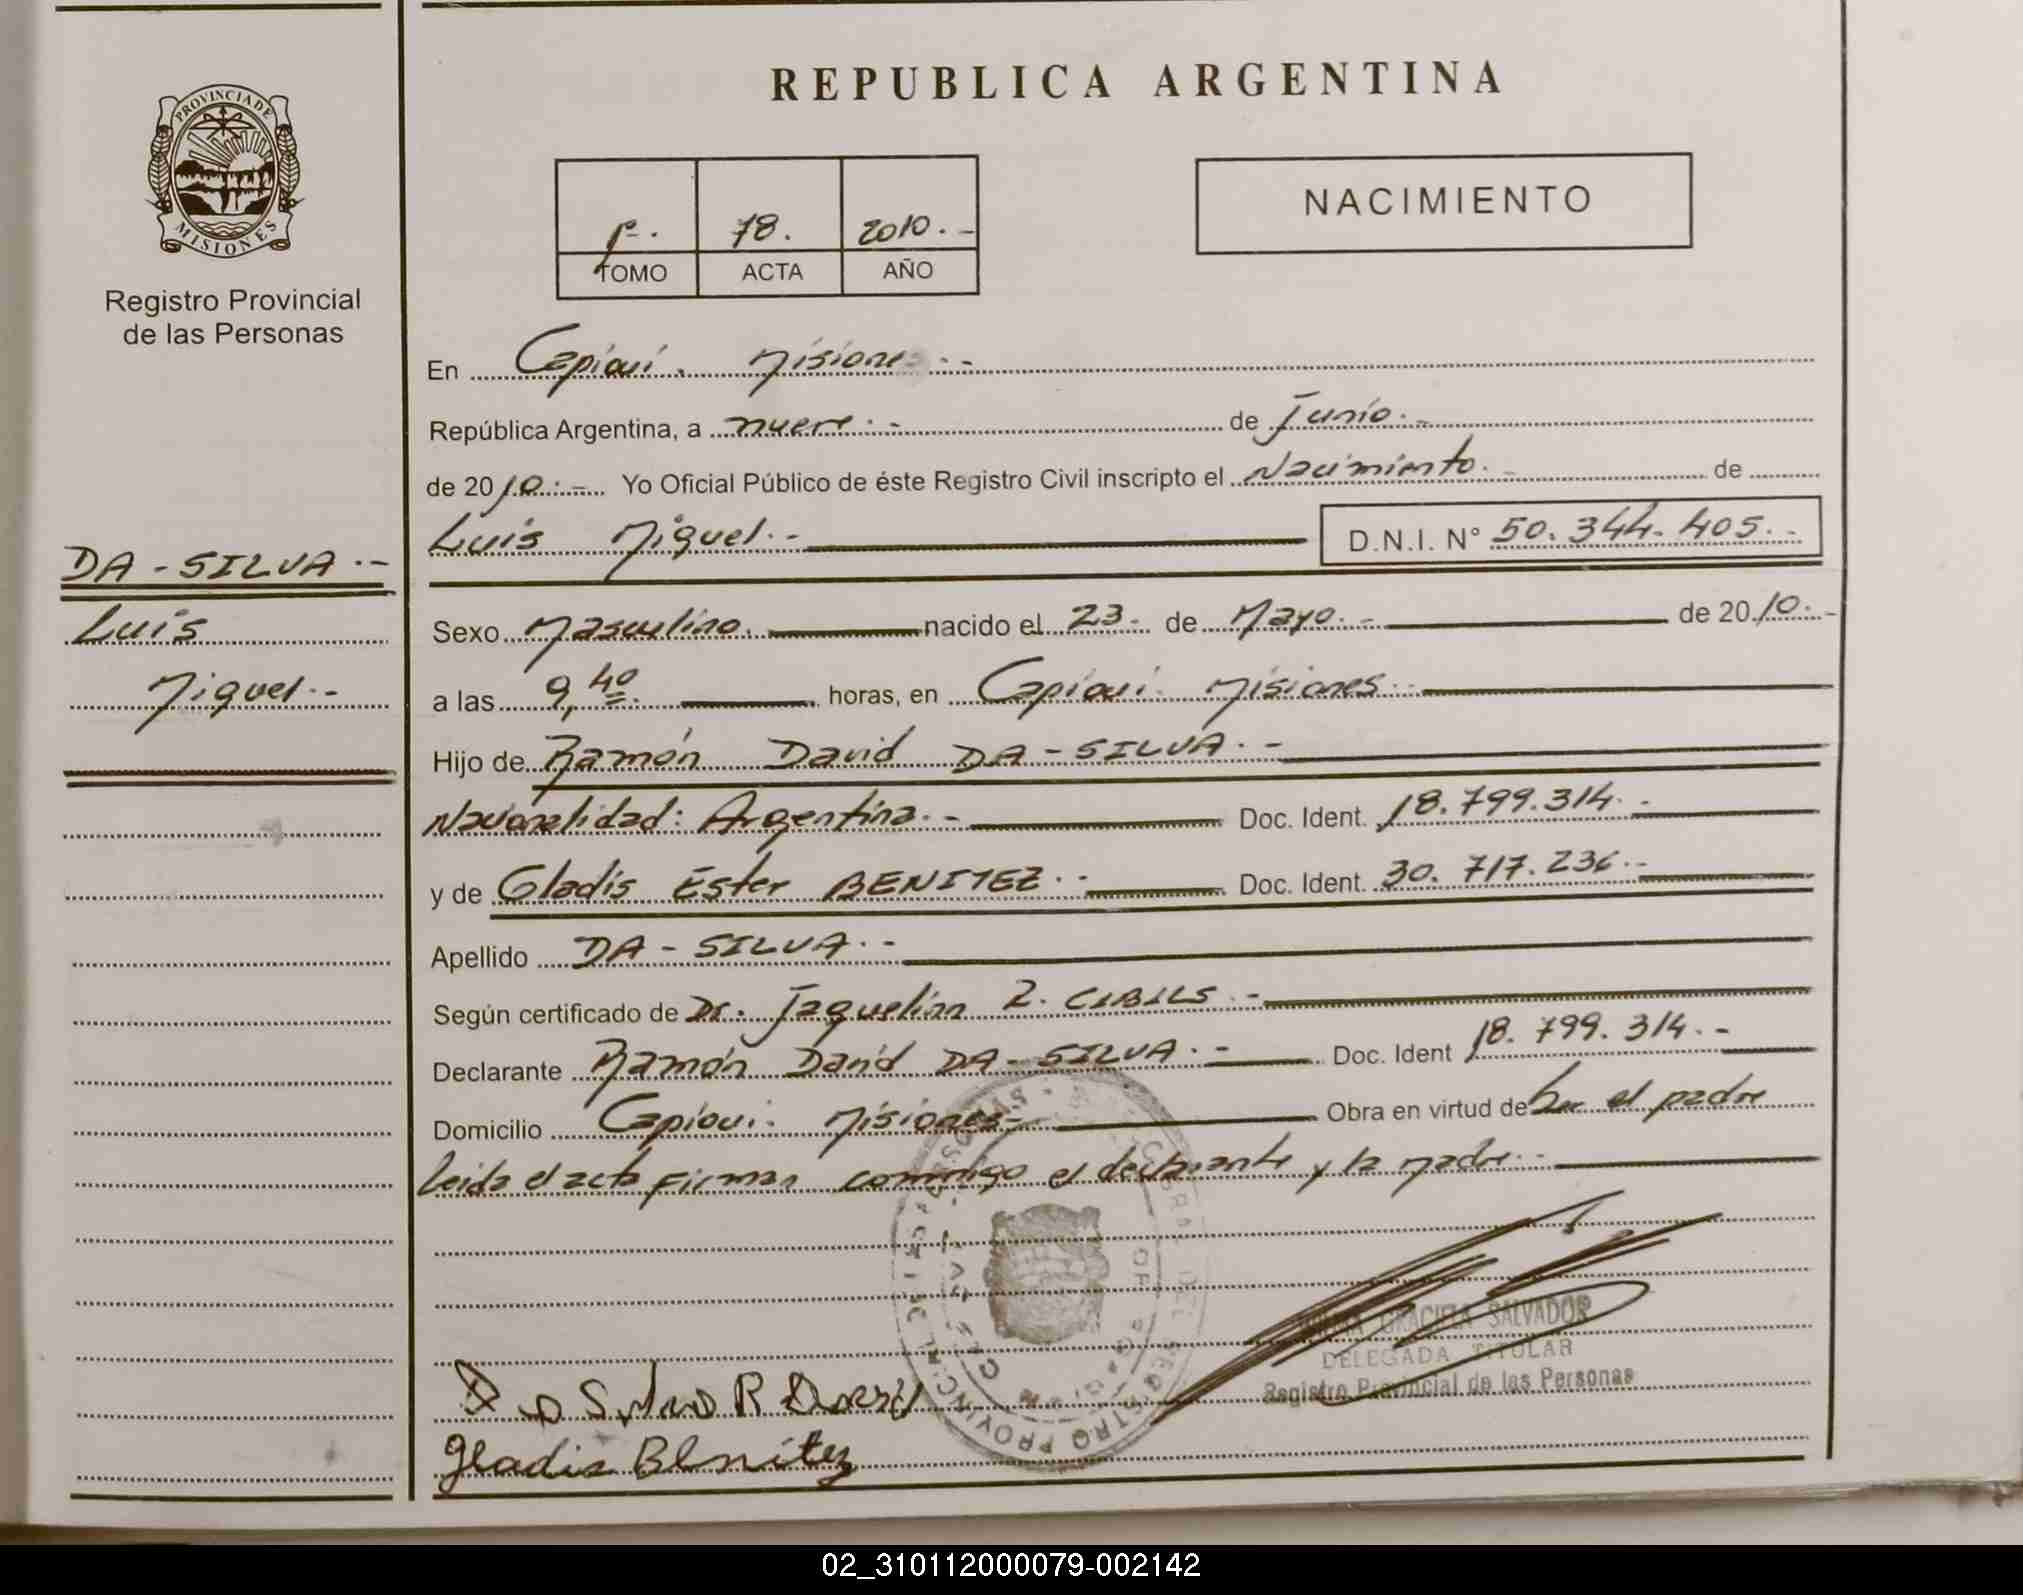 REPUBLICA ARGENTINA
PROVINCIA DE
MISIONES
Registro Provincial
de las Personas
1º. 78. 2010.-
TOMO ACTA AÑO
NACIMIENTO
En Capioví. Misiones.-
República Argentina, a nueve.- de Junio.-
de 2010.- Yo Oficial Público de éste Registro Civil inscripto el Nacimiento.- de
Luis Miguel.- D.N.I. Nº 50.344.405.-
DA-SILVA.-
Luis
Miguel.-
Sexo Masculino. nacido el 23. de Mayo.- de 2010.-
a las 9,40. horas, en Capioví. Misiones.
Hijo de Ramón David DA-SILVA.-
Nacionalidad: Argentina.- Doc. Ident. 18.799.314.-
y de Gladis Ester BENITEZ.- Doc. Ident. 30.717.236.-
Apellido DA-SILVA.-
Según certificado de Dr. Jaquelina CIBILS.-
Declarante Ramón David DA-SILVA.- Doc. Ident 18.799.314.-
Domicilio Capioví. Misiones- Obra en virtud de Ser el padre
Leida el acta firman conmigo el declarante y la madre.-
GRACIELA SALVADOR
DELEGADA TITULAR
Registro Provincial de las Personas
Da Silva R David
Gladis Benitez
02_310112000079-002142